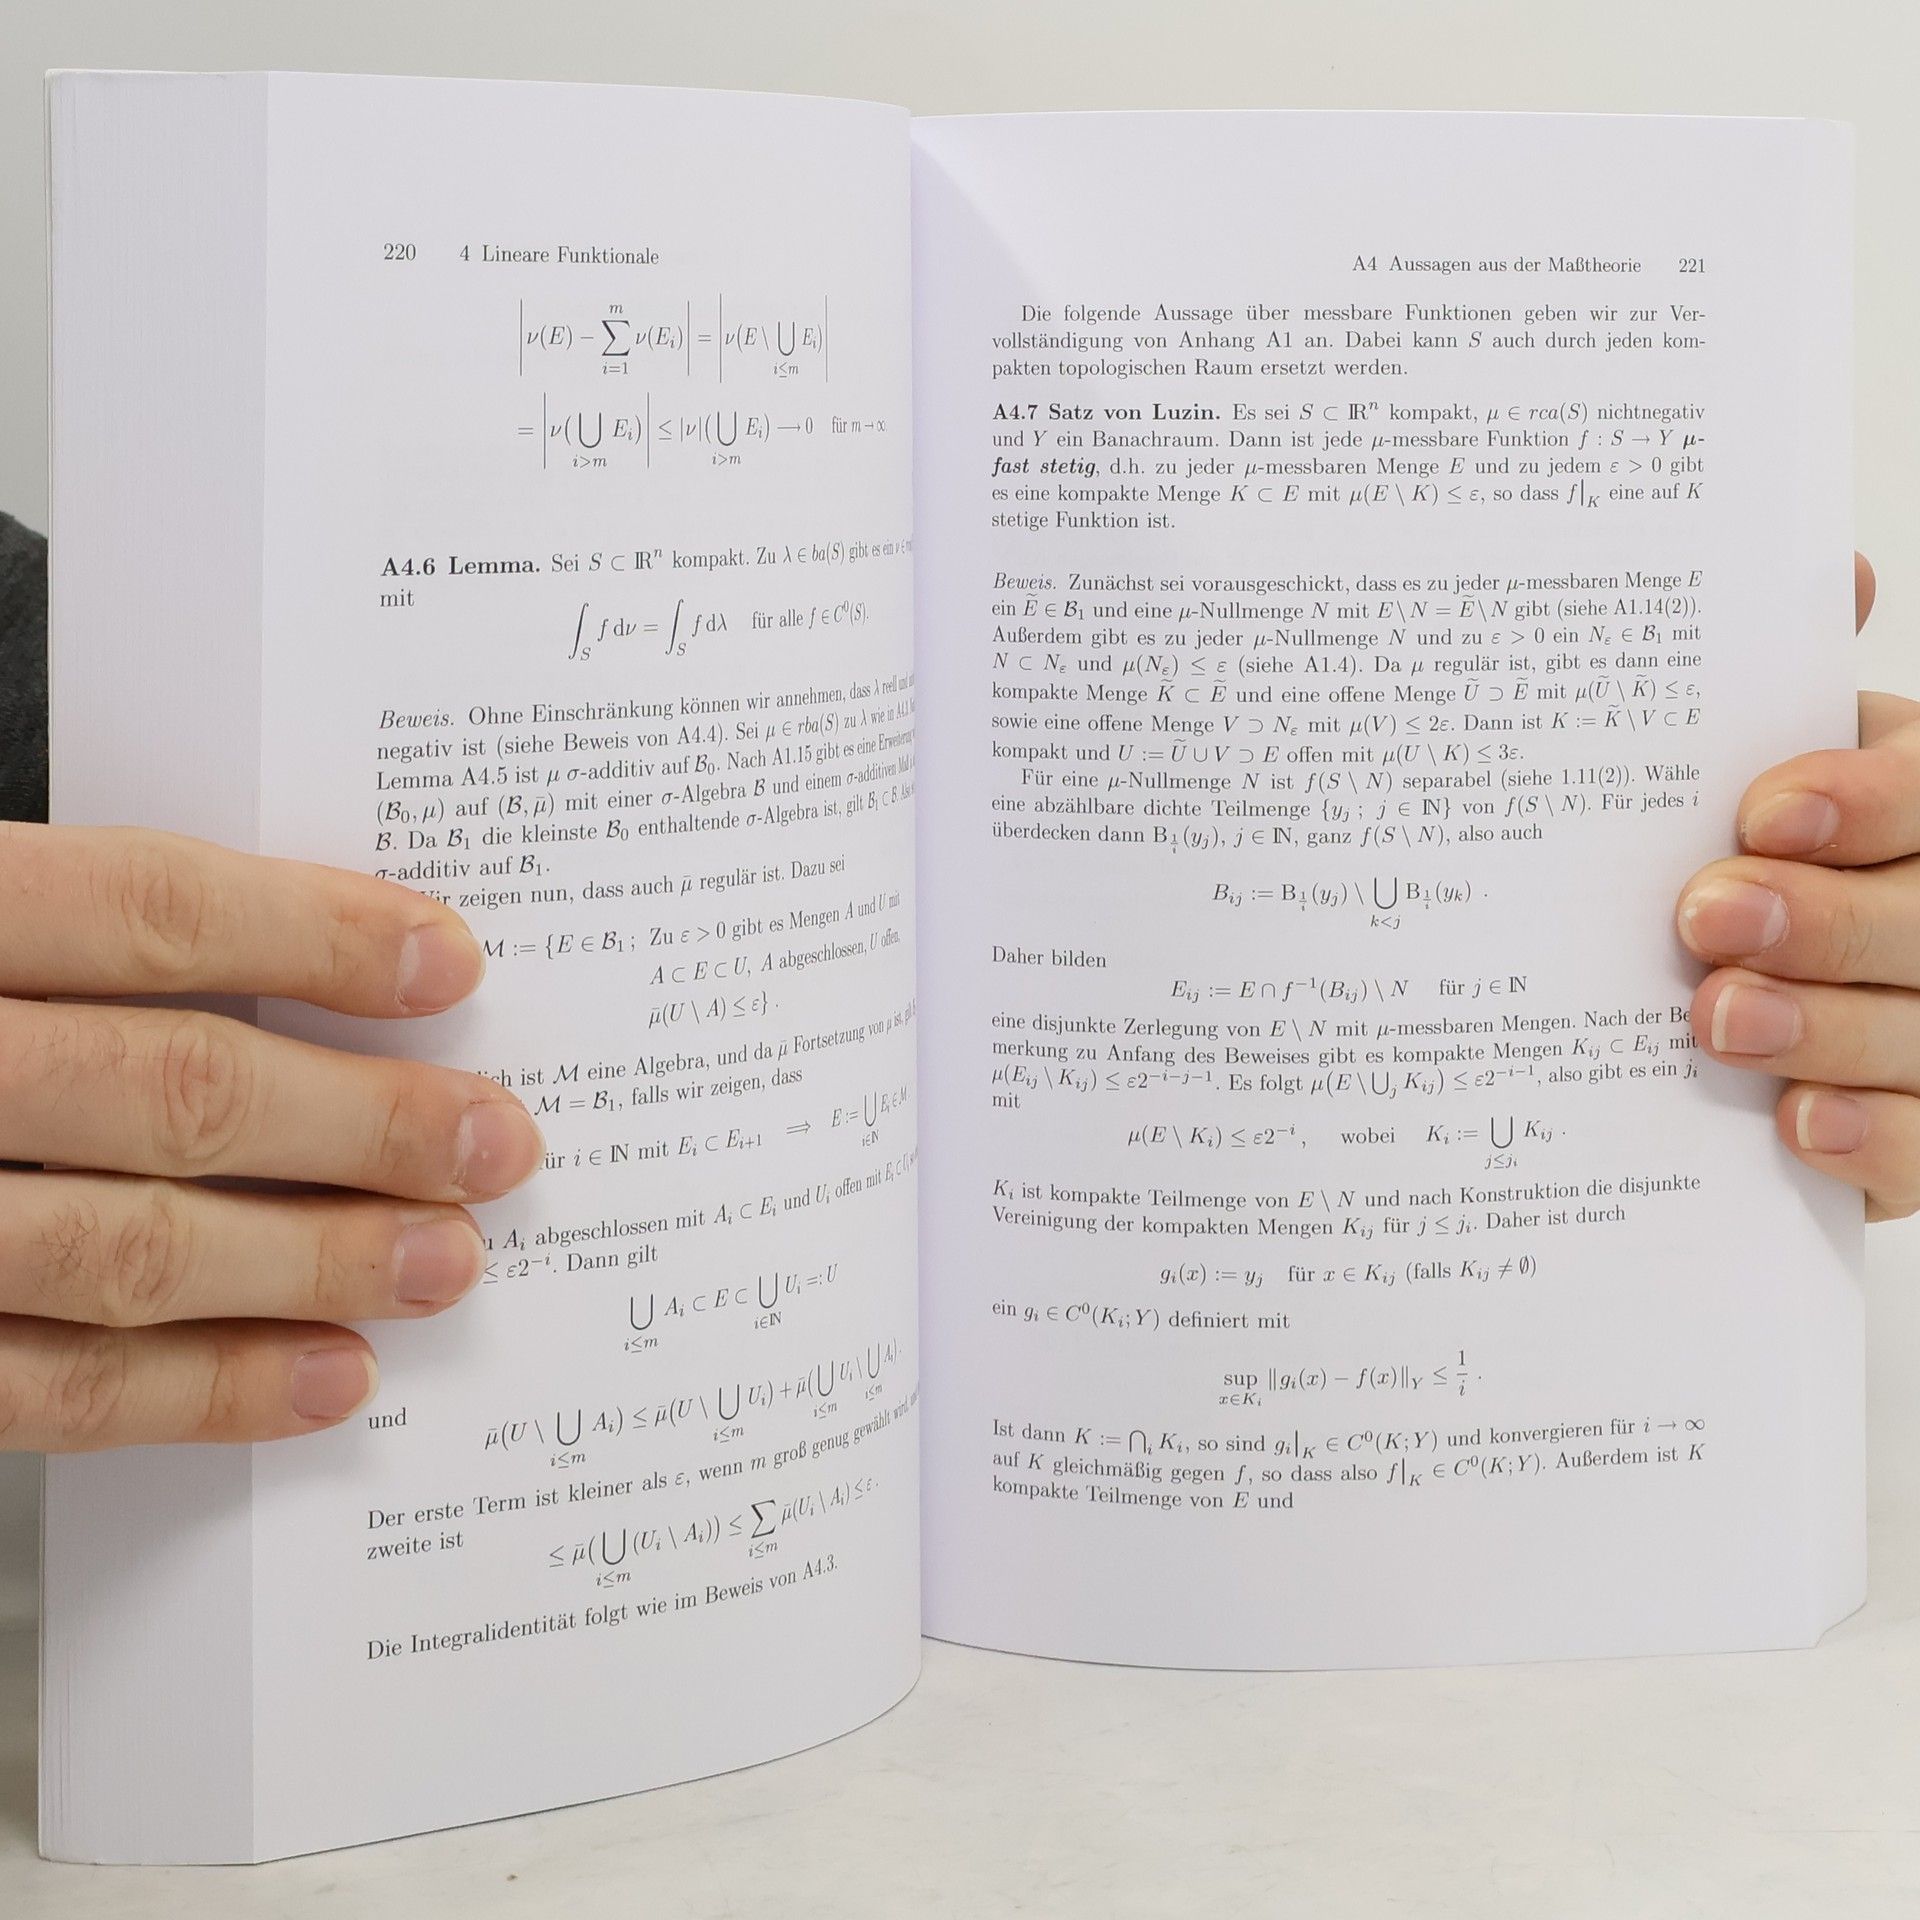 220 4 Lineare Funktionale
|ν(E) − ∑_{i=1}^{m} ν(E_i)| = |ν(E \ ⋃_{i≤m} E_i)|
= |ν(⋃_{i>m} E_i)| ≤ |ν|(⋃_{i>m} E_i) ⟶ 0 für m → ∞.
A4.6 Lemma. Sei S ⊂ ℝⁿ kompakt. Zu λ ∈ ba(S) gibt es ein ν ∈
mit
∫_S f dν = ∫_S f dλ für alle f ∈ C⁰(S).
Beweis. Ohne Einschränkung können wir annehmen, dass λ reell und
negativ ist (siehe Beweis von A4.4). Sei μ ∈ rba(S) zu λ wie in A4.3.
Lemma A4.5 ist μ σ-additiv auf ℬ₀. Nach A1.15 gibt es eine Erweiterung
(ℬ₀, μ) auf (ℬ, μ̄) mit einer σ-Algebra ℬ und einem σ-additiven Maß
ℬ. Da ℬ₁ die kleinste ℬ₀ enthaltende σ-Algebra ist, gilt ℬ₁ ⊂ ℬ.
σ-additiv auf ℬ₁.
zeigen nun, dass auch μ̄ regulär ist. Dazu sei
ℳ := {E ∈ ℬ₁ ; Zu ε > 0 gibt es Mengen A und U mit
A ⊂ E ⊂ U, A abgeschlossen, U offen,
μ̄(U \ A) ≤ ε} .
ist ℳ eine Algebra, und da μ̄ Fortsetzung von μ ist,
ℳ = ℬ₁, falls wir zeigen, dass
i ∈ ℕ mit E_i ⊂ E_{i+1} ⟹ E := ⋃_{i∈ℕ} E_i ∈ ℳ.
A_i abgeschlossen mit A_i ⊂ E_i und U_i offen mit E_i ⊂ U_i
≤ ε2^{−i}. Dann gilt
⋃_{i≤m} A_i ⊂ E ⊂ ⋃_{i∈ℕ} U_i =: U
und
μ̄(U \ ⋃_{i≤m} A_i) ≤ μ̄(U \ ⋃_{i≤m} U_i) + μ̄(⋃_{i≤m} U_i \ ⋃_{i≤m} A_i).
Der erste Term ist kleiner als ε, wenn m groß genug gewählt wird,
zweite ist
≤ μ̄(⋃_{i≤m} (U_i \ A_i)) ≤ ∑_{i≤m} μ̄(U_i \ A_i) ≤ ε .
Die Integralidentität folgt wie im Beweis von A4.3.
A4 Aussagen aus der Maßtheorie 221
Die folgende Aussage über messbare Funktionen geben wir zur Ver-
vollständigung von Anhang A1 an. Dabei kann S auch durch jeden kom-
pakten topologischen Raum ersetzt werden.
A4.7 Satz von Luzin. Es sei S ⊂ ℝⁿ kompakt, μ ∈ rca(S) nichtnegativ
und Y ein Banachraum. Dann ist jede μ-messbare Funktion f : S → Y μ-
fast stetig, d.h. zu jeder μ-messbaren Menge E und zu jedem ε > 0 gibt
es eine kompakte Menge K ⊂ E mit μ(E \ K) ≤ ε, so dass f|_K eine auf K
stetige Funktion ist.
Beweis. Zunächst sei vorausgeschickt, dass es zu jeder μ-messbaren Menge E
ein Ẽ ∈ ℬ₁ und eine μ-Nullmenge N mit E \ N = Ẽ \ N gibt (siehe A1.14(2)).
Außerdem gibt es zu jeder μ-Nullmenge N und zu ε > 0 ein N_ε ∈ ℬ₁ mit
N ⊂ N_ε und μ(N_ε) ≤ ε (siehe A1.4). Da μ regulär ist, gibt es dann eine
kompakte Menge K̃ ⊂ Ẽ und eine offene Menge Ũ ⊃ Ẽ mit μ(Ũ \ K̃) ≤ ε,
sowie eine offene Menge V ⊃ N_ε mit μ(V) ≤ 2ε. Dann ist K := K̃ \ V ⊂ E
kompakt und U := Ũ ∪ V ⊃ E offen mit μ(U \ K) ≤ 3ε.
Für eine μ-Nullmenge N ist f(S \ N) separabel (siehe 1.11(2)). Wähle
eine abzählbare dichte Teilmenge {y_j ; j ∈ ℕ} von f(S \ N). Für jedes i
überdecken dann B_{1/i}(y_j), j ∈ ℕ, ganz f(S \ N), also auch
B_{ij} := B_{1/i}(y_j) \ ⋃_{k<j} B_{1/i}(y_k) .
Daher bilden
E_{ij} := E ∩ f^{−1}(B_{ij}) \ N für j ∈ ℕ
eine disjunkte Zerlegung von E \ N mit μ-messbaren Mengen. Nach der Be
merkung zu Anfang des Beweises gibt es kompakte Mengen K_{ij} ⊂ E_{ij} mit
μ(E_{ij} \ K_{ij}) ≤ ε2^{−i−j−1}. Es folgt μ(E \ ⋃_j K_{ij}) ≤ ε2^{−i−1}, also gibt es ein j_i
mit
μ(E \ K_i) ≤ ε2^{−i} , wobei K_i := ⋃_{j≤j_i} K_{ij} .
K_i ist kompakte Teilmenge von E \ N und nach Konstruktion die disjunkte
Vereinigung der kompakten Mengen K_{ij} für j ≤ j_i. Daher ist durch
g_i(x) := y_j für x ∈ K_{ij} (falls K_{ij} ≠ ∅)
ein g_i ∈ C⁰(K_i; Y) definiert mit
sup_{x∈K_i} ‖g_i(x) − f(x)‖_Y ≤ 1/i .
Ist dann K := ⋂_i K_i, so sind g_i|_K ∈ C⁰(K; Y) und konvergieren für i → ∞
auf K gleichmäßig gegen f, so dass also f|_K ∈ C⁰(K; Y). Außerdem ist K
kompakte Teilmenge von E und